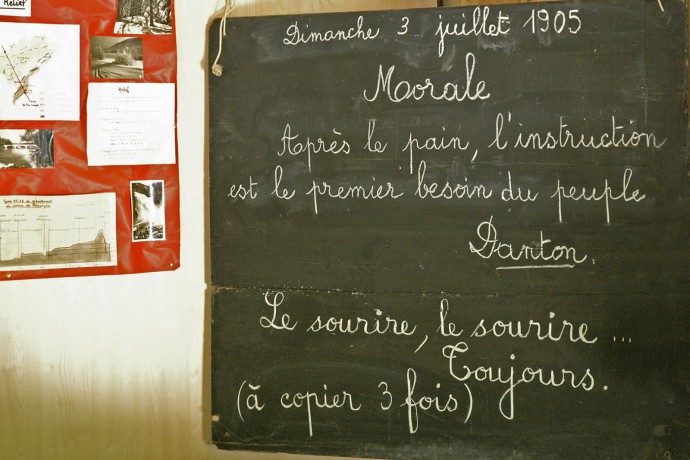 Relief
Dimanche 3 juillet 1905
Morale
Après le pain, l'instruction
est le premier besoin du peuple
Danton.
Le sourire, le sourire ...
Toujours.
(à copier 3 fois)